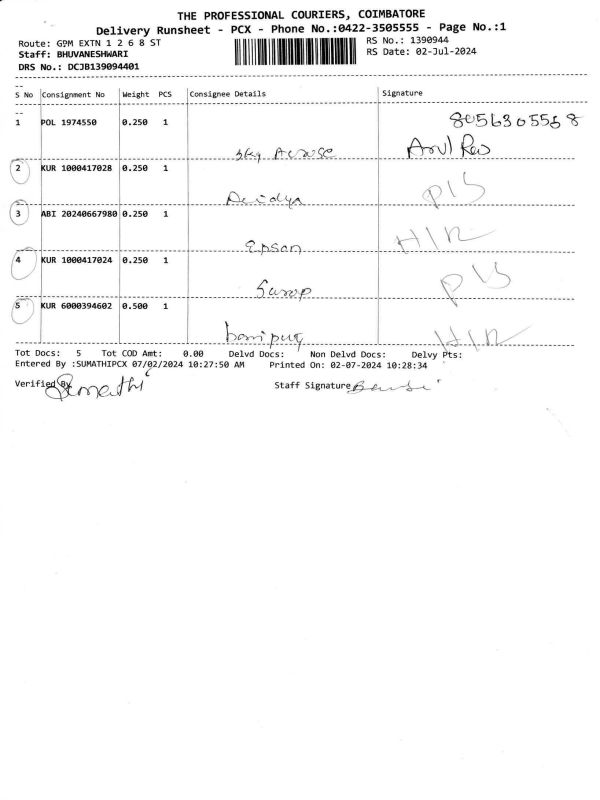 THE PROFESSIONAL COURIERS, COIMBATORE
Delivery Runsheet - PCX - Phone No.:0422-3505555 - Page No.:1
Route: GPM EXTN 1 2 6 8 ST
RS No.: 1390944
Staff: BHUVANESHWARI
RS Date: 02-Jul-2024
DRS No.: DCJB139094401
S No Consignment No Weight PCS Consignee Details Signature
1 POL 1974550 0.250 1 8056305568
2 KUR 1000417028 0.250 1
3 ABI 20240667980 0.250 1
Epson H/R
4 KUR 1000417024 0.250 1
5 KUR 6000394602 0.500 1
H/R
Tot Docs: 5 Tot COD Amt: 0.00 Delvd Docs: Non Delvd Docs: Delvy Pts:
Entered By :SUMATHIPCX 07/02/2024 10:27:50 AM Printed On: 02-07-2024 10:28:34
Verified By Staff Signature